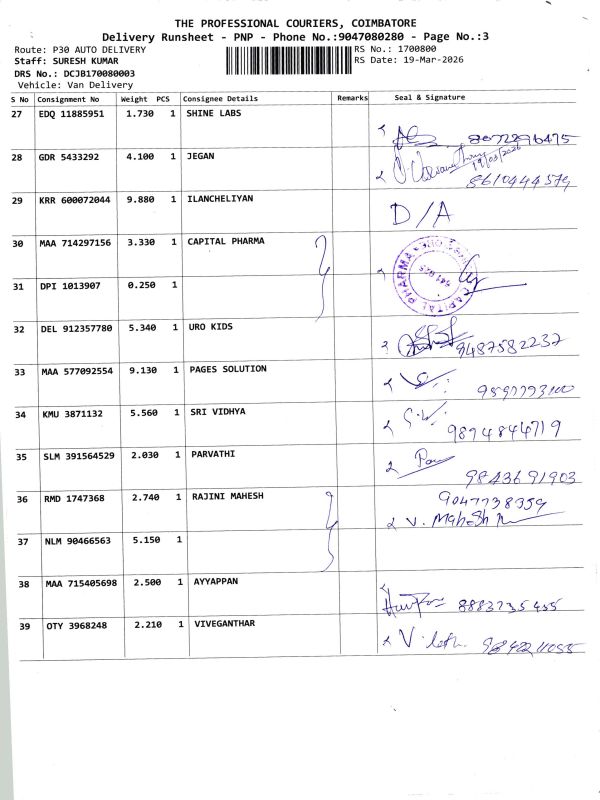 THE PROFESSIONAL COURIERS, COIMBATORE
Delivery Runsheet - PNP - Phone No.:9047080280 - Page No.:3
Route: P30 AUTO DELIVERY RS No.: 1700800
Staff: SURESH KUMAR RS Date: 19-Mar-2026
DRS No.: DCJB170080003
Vehicle: Van Delivery
S No Consignment No Weight PCS Consignee Details Remarks Seal & Signature
27 EDQ 11885951 1.730 1 SHINE LABS 8072896475
28 GDR 5433292 4.100 1 JEGAN 19/03/2026
8610444579
29 KRR 600072044 9.880 1 ILANCHELIYAN D/A
30 MAA 714297156 3.330 1 CAPITAL PHARMA
CAPITAL PHARMA
31 DPI 1013907 0.250 1
32 DEL 912357780 5.340 1 URO KIDS 9487582237
33 MAA 577092554 9.130 1 PAGES SOLUTION 9597773100
34 KMU 3871132 5.560 1 SRI VIDHYA S.V. 9894844719
35 SLM 391564529 2.030 1 PARVATHI 9843691903
36 RMD 1747368 2.740 1 RAJINI MAHESH 9047738359
V. Mahesh
37 NLM 90466563 5.150 1
38 MAA 715405698 2.500 1 AYYAPPAN 8883735455
39 OTY 3968248 2.210 1 VIVEGANTHAR 9842211055